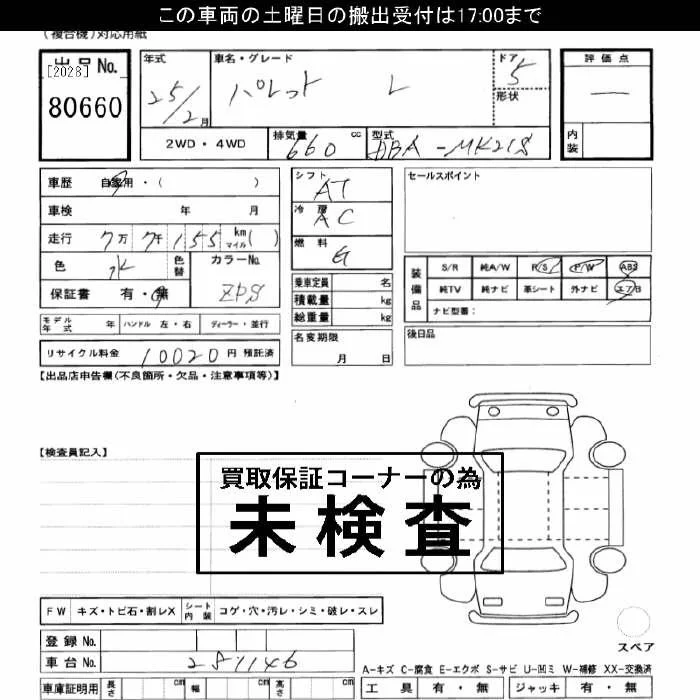 この車両の土曜日の搬出受付は17:00まで
(複合機)対応用紙
出品No.
[2028]
80660
年式
25/2月
車名・グレード
パレット L
ドア
5
形状
評価点
一
内装
2WD・4WD
排気量
660 cc
型式
DBA-MK21S
車歴 自家用・( )
車検 年 月
走行 7万7千155 km マイル( )
色
色替
カラーNo.
ZPS
保証書 有・無
シフト
AT
冷房
AC
燃料
G
乗車定員 名
積載量 kg
総重量 kg
セールスポイント
装備品
S/R 純A/W P/S P/W ABS
純TV 純ナビ 革シート 外ナビ エアB
ナビ型番:
モデル年式 年 ハンドル 左・右 ディーラー・並行
名変期限
月 日
後日品
リサイクル料金 10020 円 預託済
【出品店申告欄(不良箇所・欠品・注意事項等)】
【検査員記入】
買取保証コーナーの為
未検査
FW キズ・トビ石・割レX シート内装 コゲ・穴・汚レ・シミ・破レ・スレ
登録No.
車台No. 281146
スペア
A-キズ C-腐食 E-エクボ S-サビ U-凹ミ W-補修 XX-交換済
車庫証明用 長さ cm 幅 cm 高さ cm
工具 有・無 ジャッキ 有・無